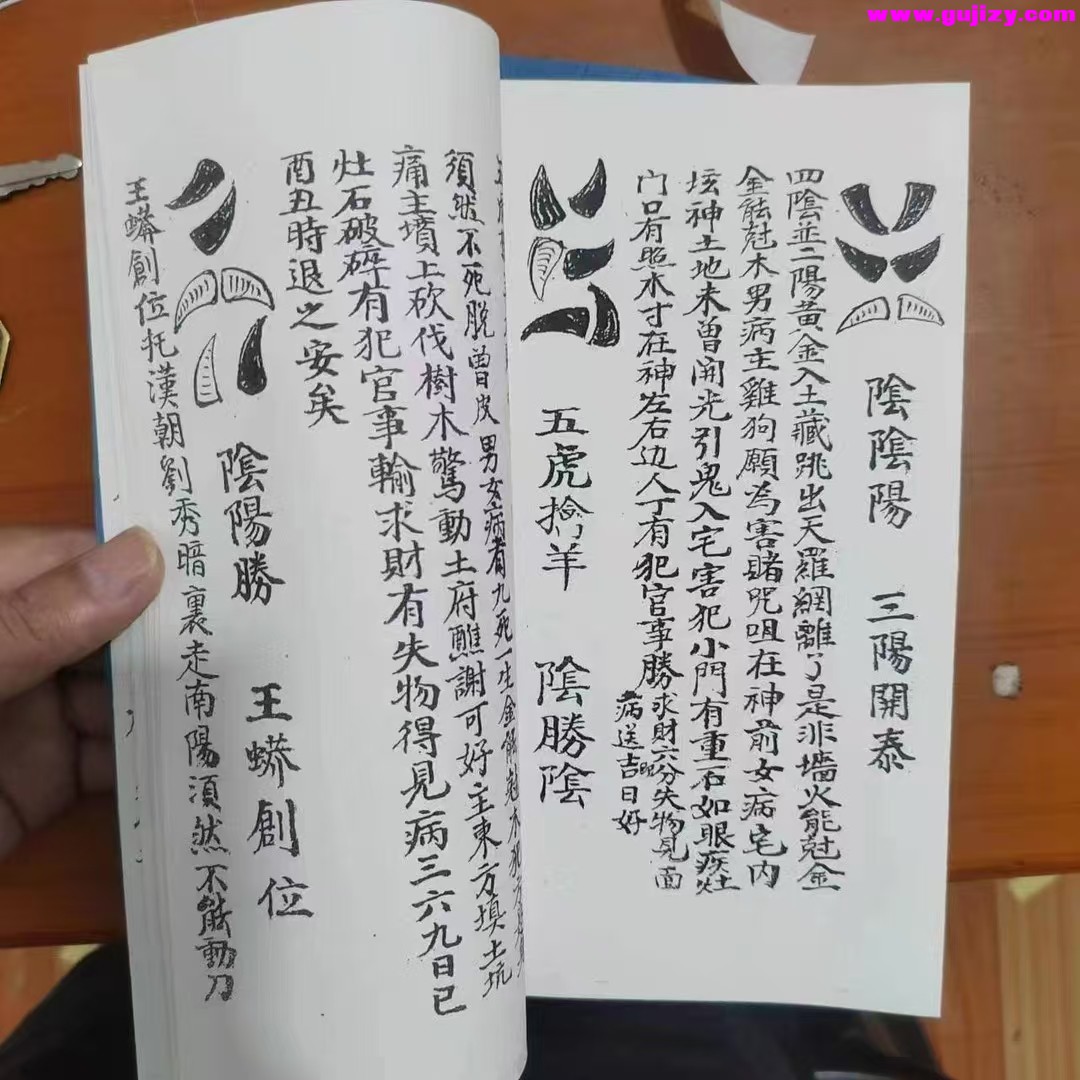 www.gujizy.com
陰陰陽 三陽開泰
四陰並二陽黄金入土藏跳出天羅網離了是非墻火能尅金
金能尅木男病主雞狗願為害賭咒咀在神前女病宅内
坛神土地未曾開光引鬼入宅害犯小門有重石如眼疾灶
门口有照木寸在神左右边人丁有犯官事勝求財六分失物見面
病送吉日好
五虎擒羊 陰勝陰
須然不死脱曾皮男女病者九死一生金能尅木
痛主墳上砍伐樹木驚動土府醮謝可好主東方填土坑
灶石破碎有犯官事輸求財有失物得見病三六九日已
酉丑時退之安矣
陰陽勝 王蟒創位
王蟒創位托漢朝劉秀暗裏走南陽湏然不能動刀